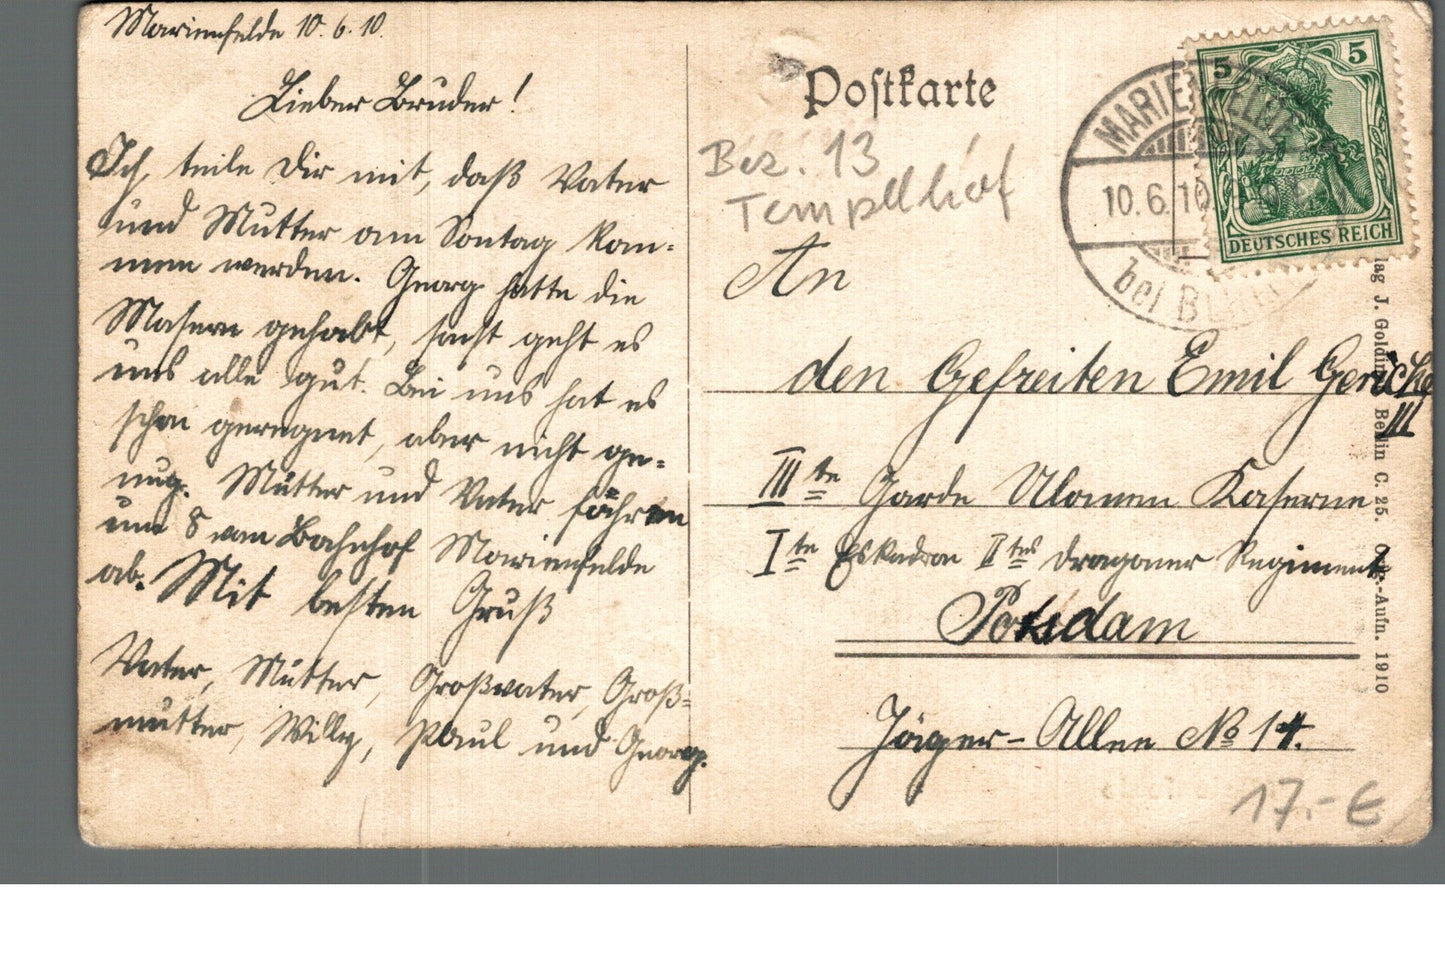 Marienfelde 10.6.10.
Lieber Bruder!
Ich teile Dir mit, daß Vater
und Mutter am Sontag kom-
men werden. Georg hatte die
Masern gehabt, sonst geht es
uns alle gut. Bei uns hat es
schon geregnet, aber nicht ge-
nug. Mutter und Vater fahren
um 8 vom Bahnhof Marienfelde
ab. Mit besten Gruß
Vater, Mutter, Großvater, Groß-
mutter, Willy, Paul und Georg.
Postkarte
Bez. 13
Tempelhof
MARIENFELDE
10.6.10.
bei BERLIN
5 5
DEUTSCHES REICH
An
den Gefreiten Emil Gericke
III
IIIte Garde Ulanen Kaserne
Ite Eskadron IItes Dragoner Regiment
Potsdam
Jäger-Allee No 14.
J. Goldin Berlin C. 25. -Aufn. 1910
17.- €